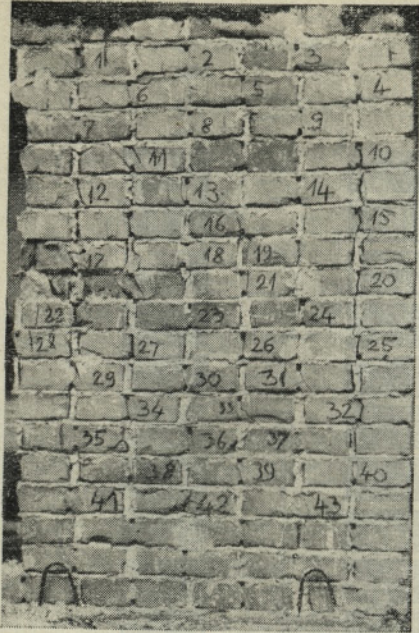 1 2 3 1
6 5 4
7 8 9
11 10
12 13 14
16 15
17 18 19
21 20
22 23 24
28 27 26 25
29 30 31
34 33 32
35 36 37
38 39 40
41 42 43